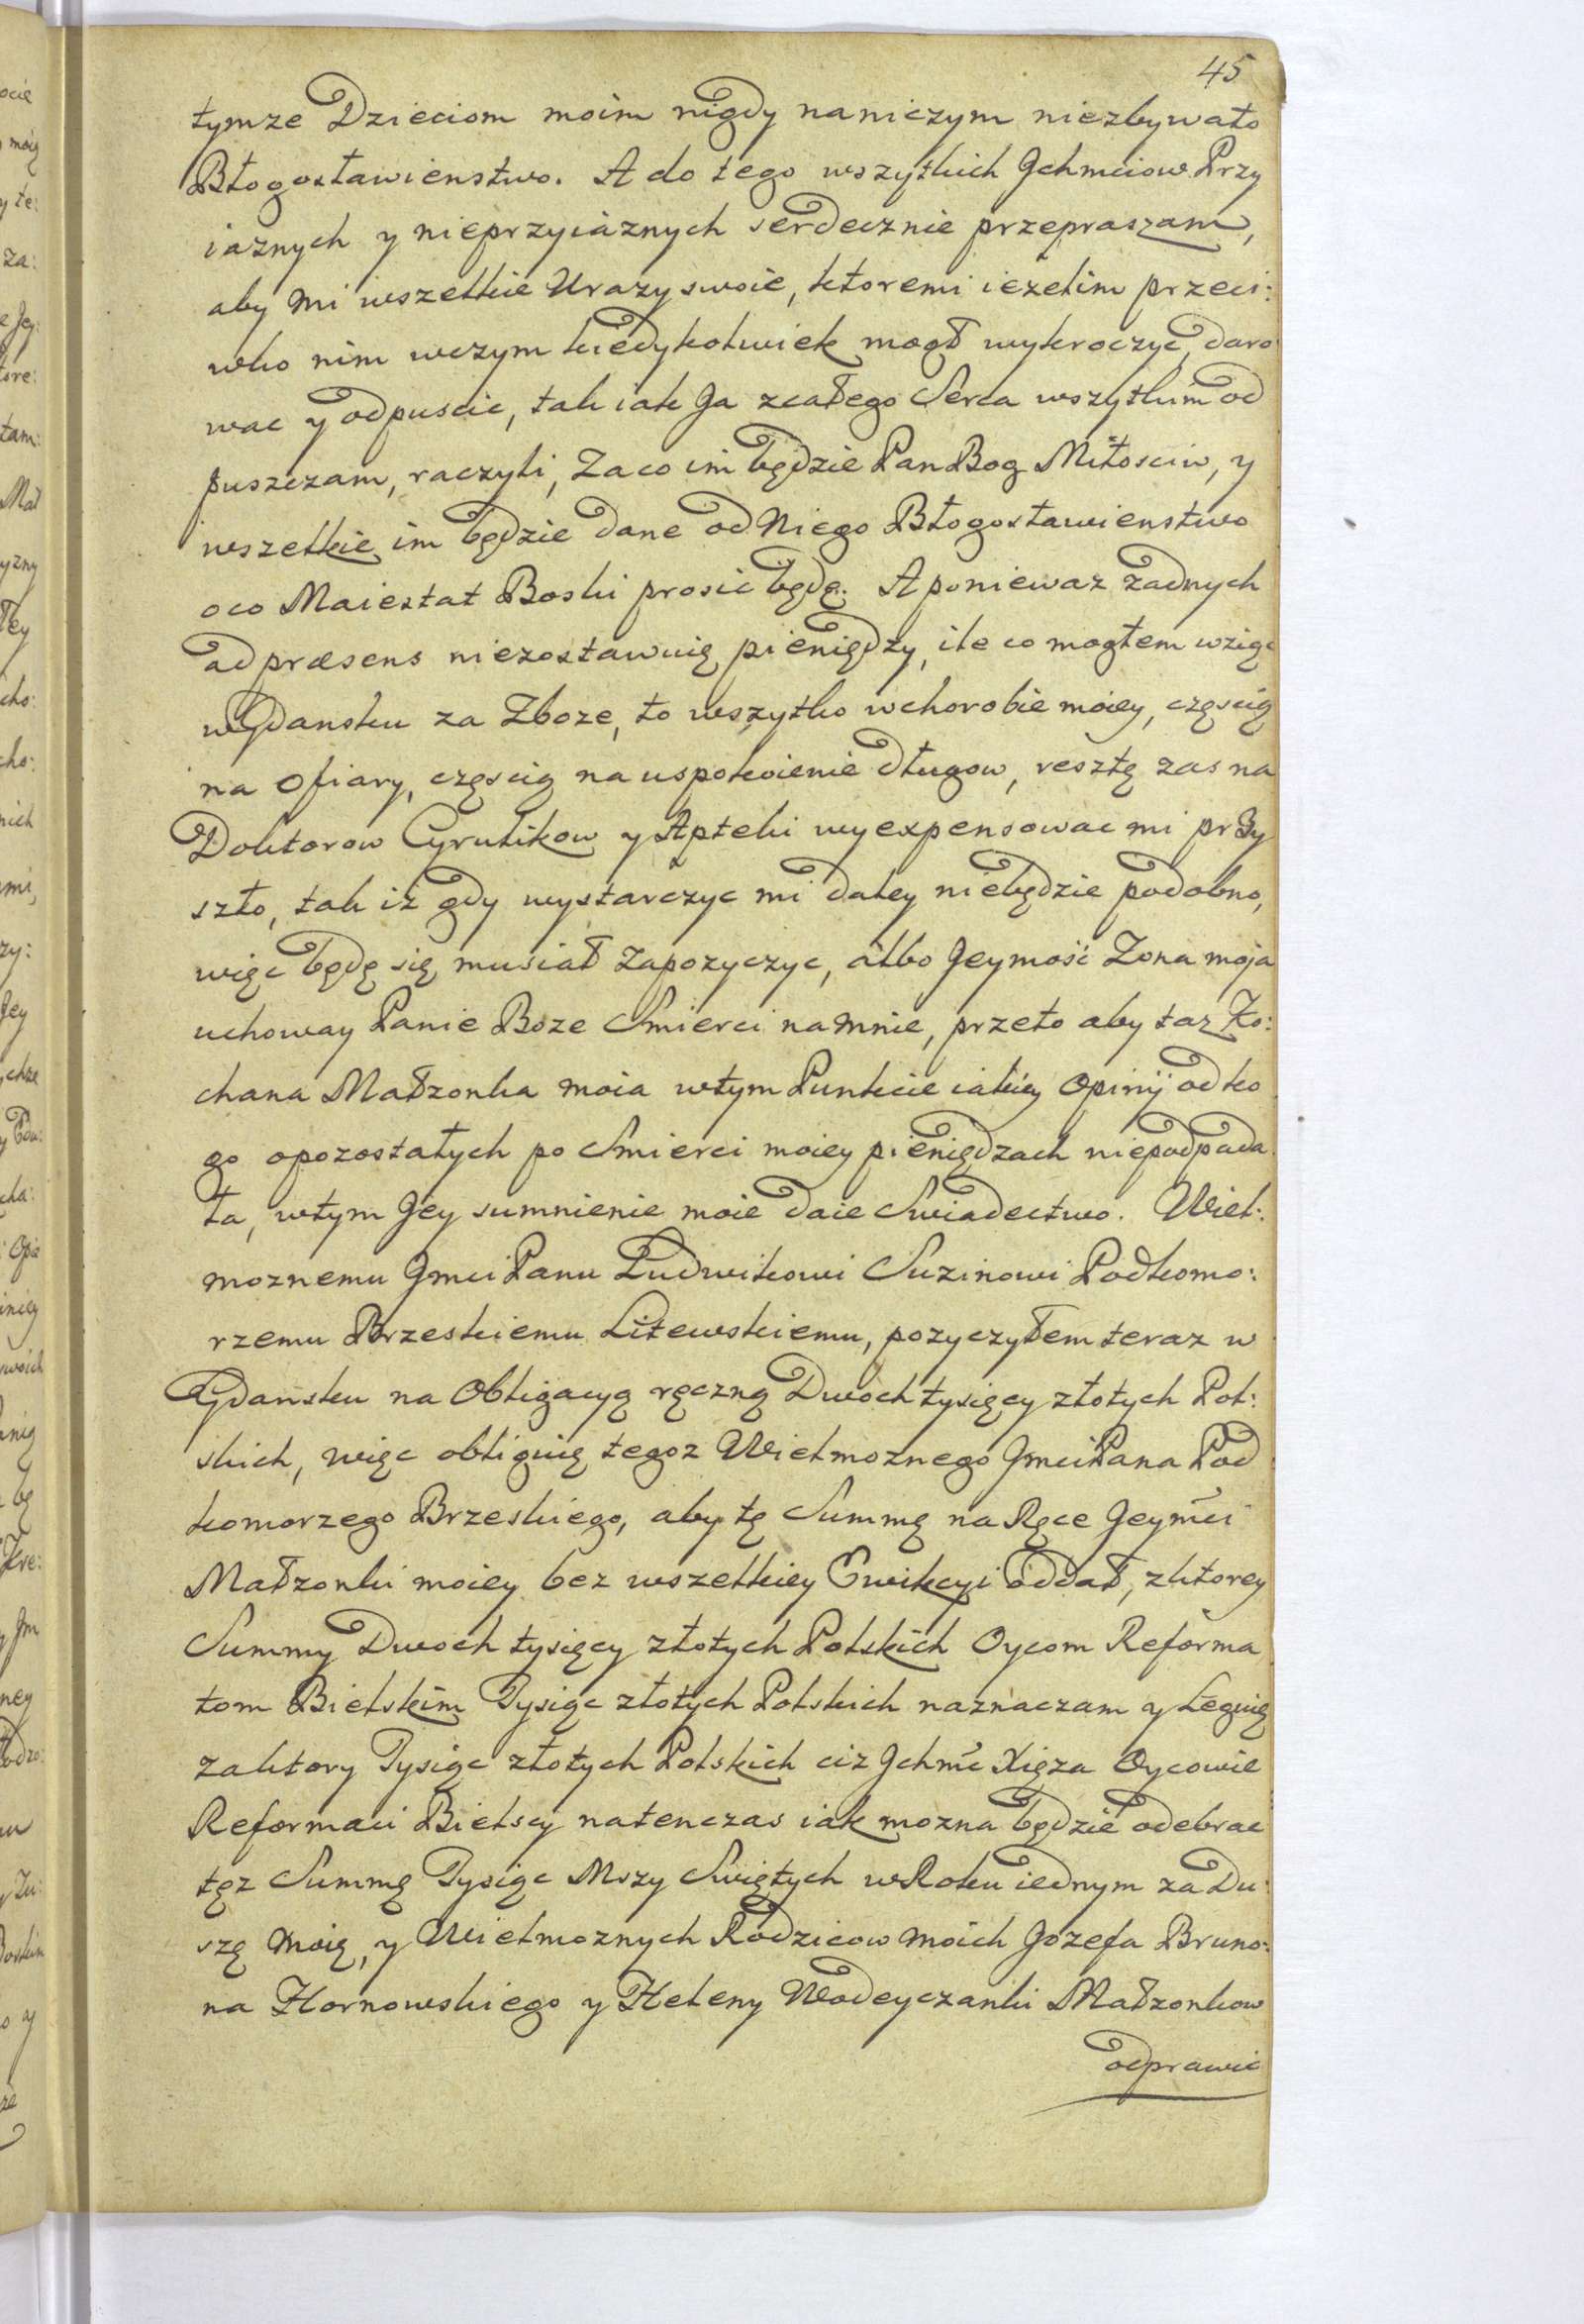 45
tymze Dzieciom moim nigdy naniczym niezbywało
Błogosławienstwo. A do tego wszytkich Jchmciow Przy
iaznych y nieprzyiaznych serdecznie przepraszam,
aby mi wszelkie Urazy swoie, ktoremi ieżelim przeci:
wko nim wczym kiedykolwiek mogł wykroczyć, daro
wac y odpuscic, tak iak Ja zcałego Serca wszytkim od
puszczam, raczyli, Zaco im będzie Pan Bog Miłosciw, y
wszelkie im będzie dane od Niego Błogosławienstwo
oco Maiestat Boski prosic będę. A poniewaz żadnych
ad præsens niezostawuię pieniędzy, ile co mogłem wziąc
w Gdansku za Zboze, to wszytko wchorobie moiey, częscią
na Ofiary, częscią na uspokoienie długow, resztę zas na
Doktorow Cyrulikow y Apteki wyexpensowac mi przy
szło, tak iż gdy wystarczyc mi daley niebędzie podobno,
więc będę się musiał Zapozyczyc, albo Jeymość Zona moja
uchoway Panie Boze Smierci na mnie, przeto aby taz Ko:
chana Małzonka moia wtym Punkcie iakiey Opinij od ko
go opozostałych po Smierci moiey pieniędzach niepodpada
ła, wtym Jey sumnienie moie daie Swiadectwo. Wiel:
moznemu Jmci Panu Ludwikowi Suzinowi Podkomo:
rzemu Brzeskiemu Litewskiemu, pozyczyłem teraz w
Gdansku na Obligacyą ręczną Dwoch tysięcy złotych Pol:
skich, więc obliguię tegoz Wielmoznego Jmci Pana Pod
komorzego Brzeskiego, aby tę Summę na Ręce Jeymci
Małzonki moiey bez wszelkiey Ewikcyi oddał, zktorey
Summy Dwoch tysięcy złotych Polskich Oycom Reforma
tom Bielskim Tysiąc złotych Polskich naznaczam y Leguię
zaktory Tysiąc złotych Polskich ciz Jchmc Xięza Oycowie
Reformaci Bielscy natenczas iak mozna będzie odebrac
tęz Summę Tysiąc Mszy Swiętych w Roku iednym za Du:
szę moią, y Wielmoznych Rodzicow moich Jozefa Bruno:
na Hornowskiego y Heleny Wodeyczanki Małzonkow
odprawic